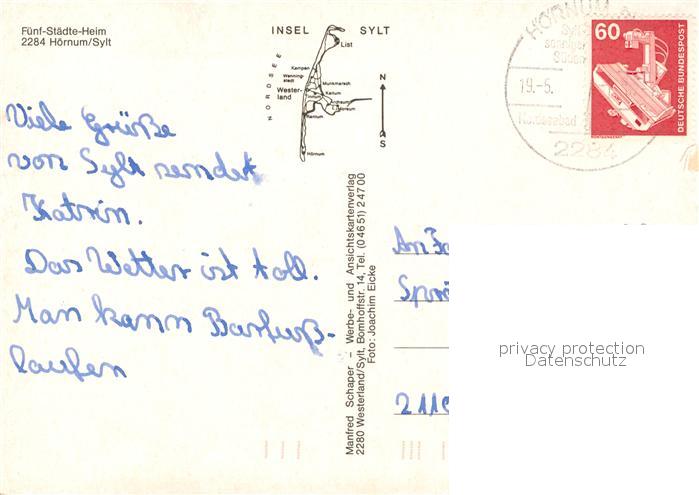 Fünf-Städte-Heim
2284 Hörnum/Sylt
INSEL SYLT
NORDSEE
List
Kampen
Wenning-
stedt
Munkmarsch
Wester-
land
Keitum
Archsum
Morsum
Rantum
Hörnum
N
S
HÖRNUM
19.-5.
2284
60
DEUTSCHE BUNDESPOST
Viele Grüße
von Sylt sendet
Katrin.
Das Wetter ist toll.
Man kann Barfuß-
laufen
Manfred Schaper - Werbe- und Ansichtskartenverlag
2280 Westerland/Sylt, Bomhoffstr. 14, Tel. (04651) 24700
Foto: Joachim Eicke
An Fa
Sprö
211
privacy protection
Datenschutz